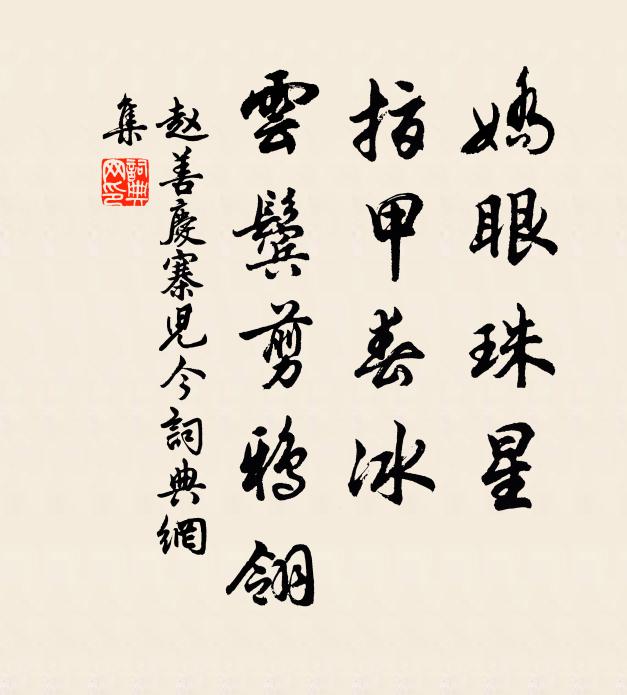 嬌眼珠星
指甲春冰
雲鬢剪鴉翎
赵善慶寨児今詞典網
集
詞典網印